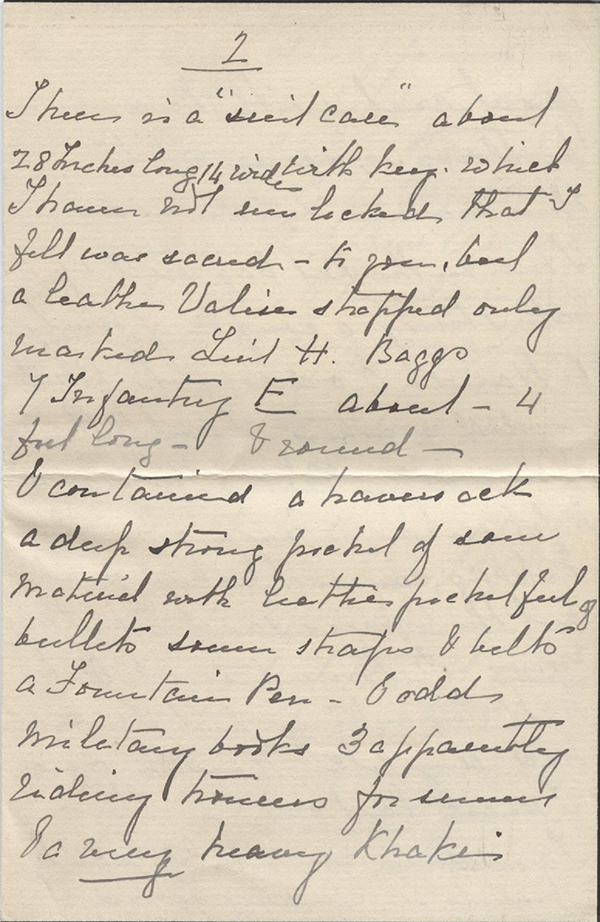 2
There is a "suit case" about
28 Inches long 14 wide with key. which
I have not unlocked, that I
felt was sacred - to you, but
a leather Valise strapped only
marked Lieut H. Baggs
7 Infantry E about - 4
feet long - & round -
& contained a haversack
a deep strong pocket of same
material with leather pocket full of
bullets some straps & belts
a Fountain Pen - & odds
military books 3 apparently
riding trousers for summer
& a very heavy Khaki